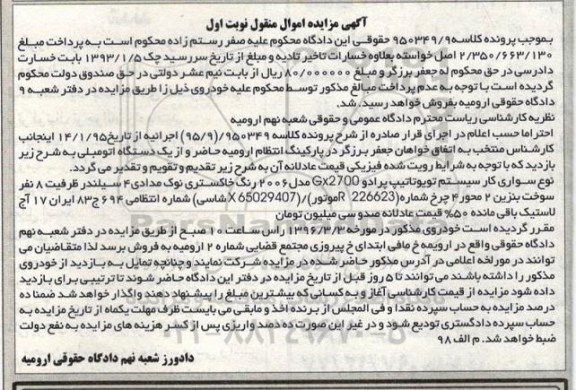 آگهی مزایده اموال منقول نوبت اول
بموجب پرونده کلاسه ۹۵۰۳۴۹/۹ حقوقی این دادگاه محکوم علیه صفر رستم زاده محکوم است به پرداخت مبلغ
۲/۳۵۰/۶۶۳/۱۳۰ اصل خواسته بعلاوه خسارات تاخیر تادیه و مبلغ از تاریخ سررسید چک ۱۳۹۳/۱/۵ بابت خسارت
دادرسی در حق محکوم له جعفر برزگر و مبلغ ۸۰/۰۰۰۰۰۰ ریال از بابت نیم عشر دولتی در حق صندوق دولت محکوم
گردیده است با توجه به عدم پرداخت مبالغ مذکور توسط محکوم علیه خودروی ذیل را طریق مزایده در دفتر شعبه ۹
دادگاه حقوقی ارومیه بفروش خواهد رسید. شد.
نظریه کارشناسی ریاست محترم دادگاه عمومی و حقوقی شعبه نهم ارومیه
احتراما حسب اعلام در اجرای قرار صادره از شرح پرونده کلاسه ۹۵۰۳۴۹ (۹۵/۹) اجرائیه از تاریخ ۱۴/۱/۹۵ اینجانب
کارشناس منتخب به اتفاق خواهان جعفر برزگر در پارکینگ انتظام ارومیه حاضر و از یک دستگاه اتومبیلی به شرح زیر
بازدید که با توجه به شرایط رویت شده فیزیکی قیمت عادلانه آن به شرح زیر تقدیم و تقویم و تقدیر می گردد.
نوع سواری کار سیستم تویوتاتیپ پرادو Gx2700 مدل ۲۰۰۶ رنگ خاکستری نوک مدادی ۴ سیلندر ظرفیت ۸ نفر
سوخت بنزین ۲ محور ۴ چرخ شماره (R 226623 موتور)/(X 65029407 شاسی) شماره انتظامی ۶۹۴ ج ۸۳ ایران ۱۷ آج
لاستیک باقی مانده ۵۰% قیمت عادلانه صدو سی میلیون تومان
مقرر گردیده است خودروی مذکور در مورخه ۱۳۹۶/۳/۳ راس ساعت ۱۰ صبح از طریق مزایده در دفتر شعبه نهم
دادگاه حقوقی واقع در ارومیه خ مافی ابتدای خ پیروزی مجتمع قضایی شماره ۲ ارومیه به فروش برسد لذا متقاضیان می
توانند در مورخه اعلامی در آدرس مذکور حاضر شده در مزایده شرکت نمایند و چنانچه تمایل به بازدید از خودروی
مذکور را داشته باشند می توانند تا ۵ روز قبل از تاریخ مزایده در دفتر این دادگاه حاضر شوند تا ترتیبی برای بازدید
داده شود مزایده از قیمت کارشناسی آغاز و به کسانی که بیشترین مبلغ را پیشنهاد دهند واگذار خواهد شد ضمنا ده
درصد مزایده به حساب سپرده نقدا و فی المجلس از برنده اخذ و مابقی می بایست ظرف مهلت یکماه از تاریخ مزایده به
حساب سپرده دادگستری تودیع شود و در غیر این صورت ده دصد واریزی پس از کسر هزینه های مزایده به نفع دولت
ضبط خواهد شد. م الف ۹۸
دادورز شعبه نهم دادگاه حقوقی ارومیه